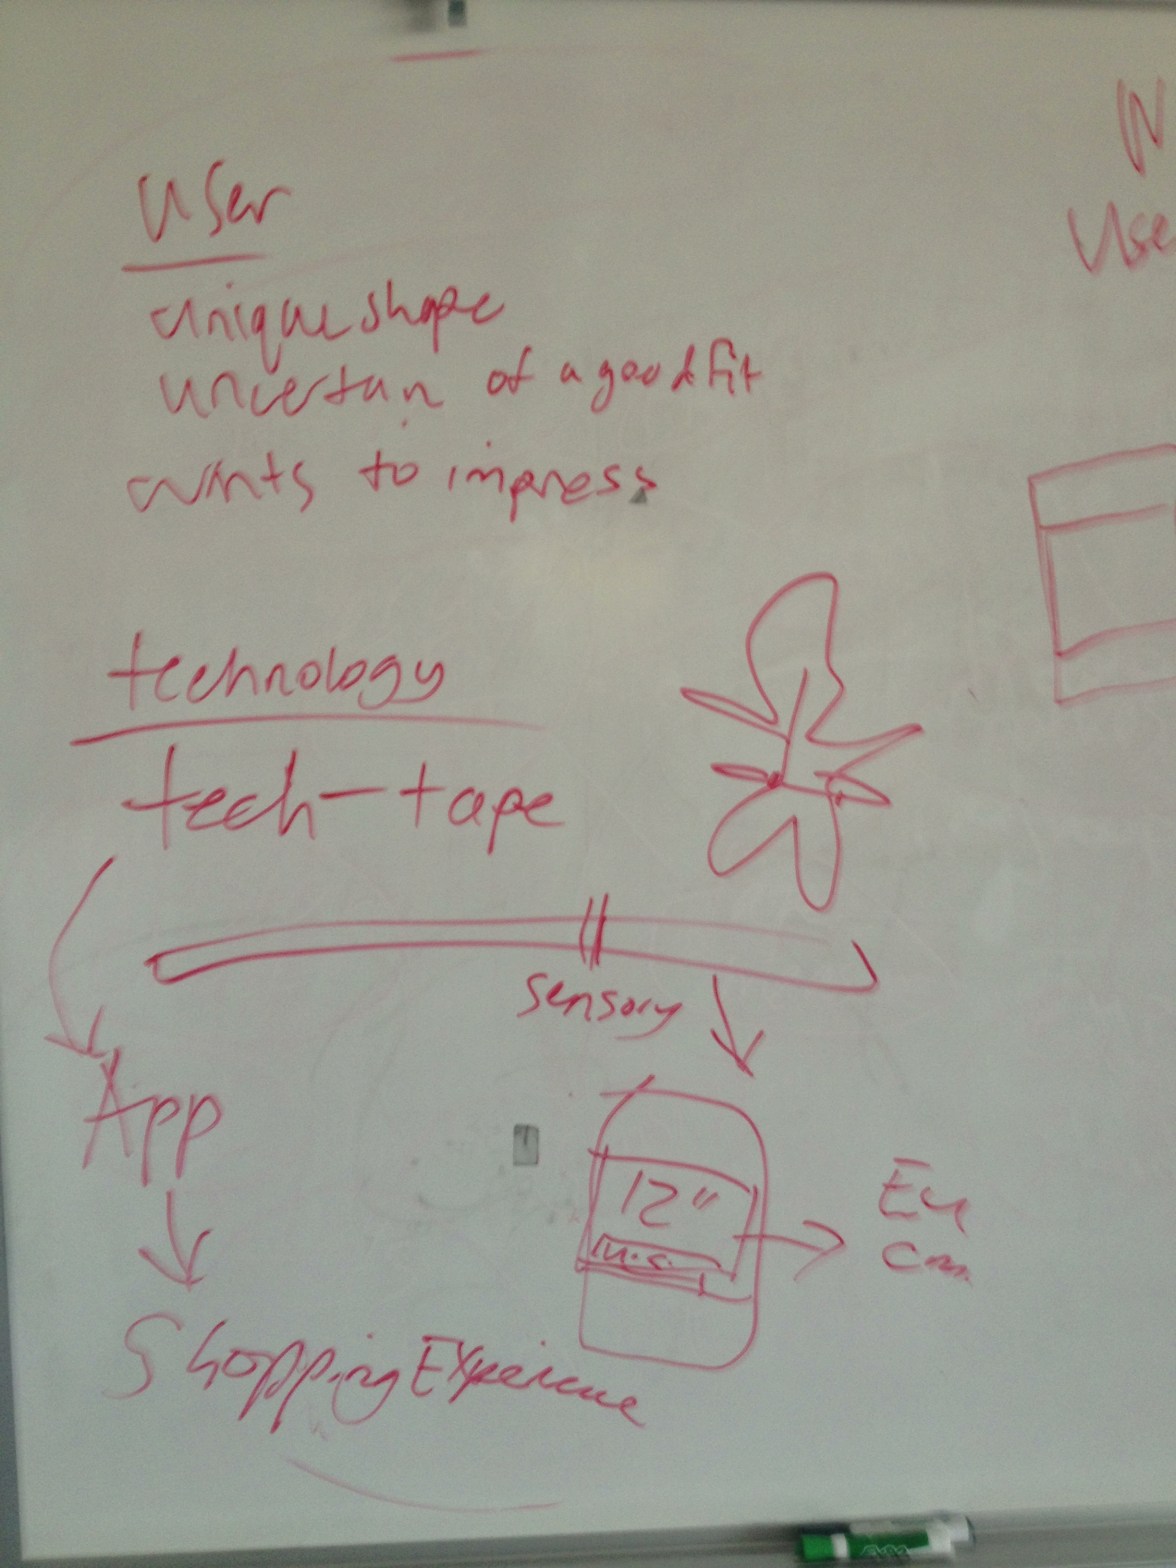 User
unique shape
uncertain of a good fit
wants to impress
technology
tech-tape
sensory
App
12"
Cm
Shopping Experience
N
Use